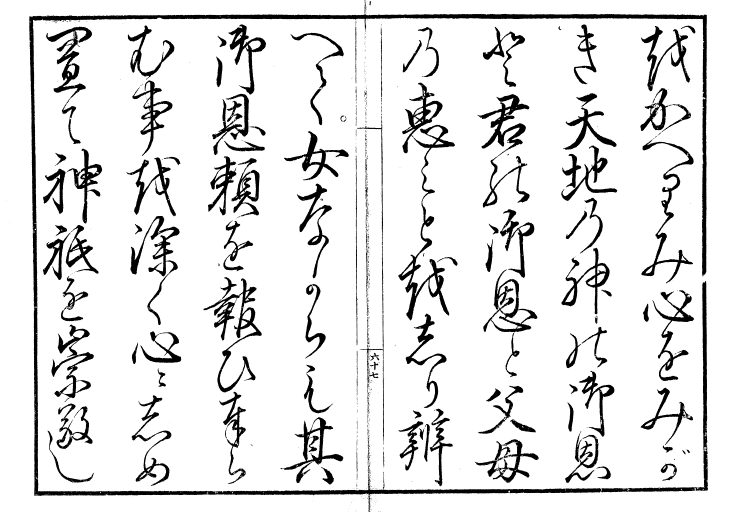 越かへりみ心をみが
き天地乃神能御恩
と君能御恩と父母
乃恵みと越志り辨
六十七
へて。女奈からも其
御恩頼を報ひ奉ら
む事越深く心に志め
置て神祇を崇敬し